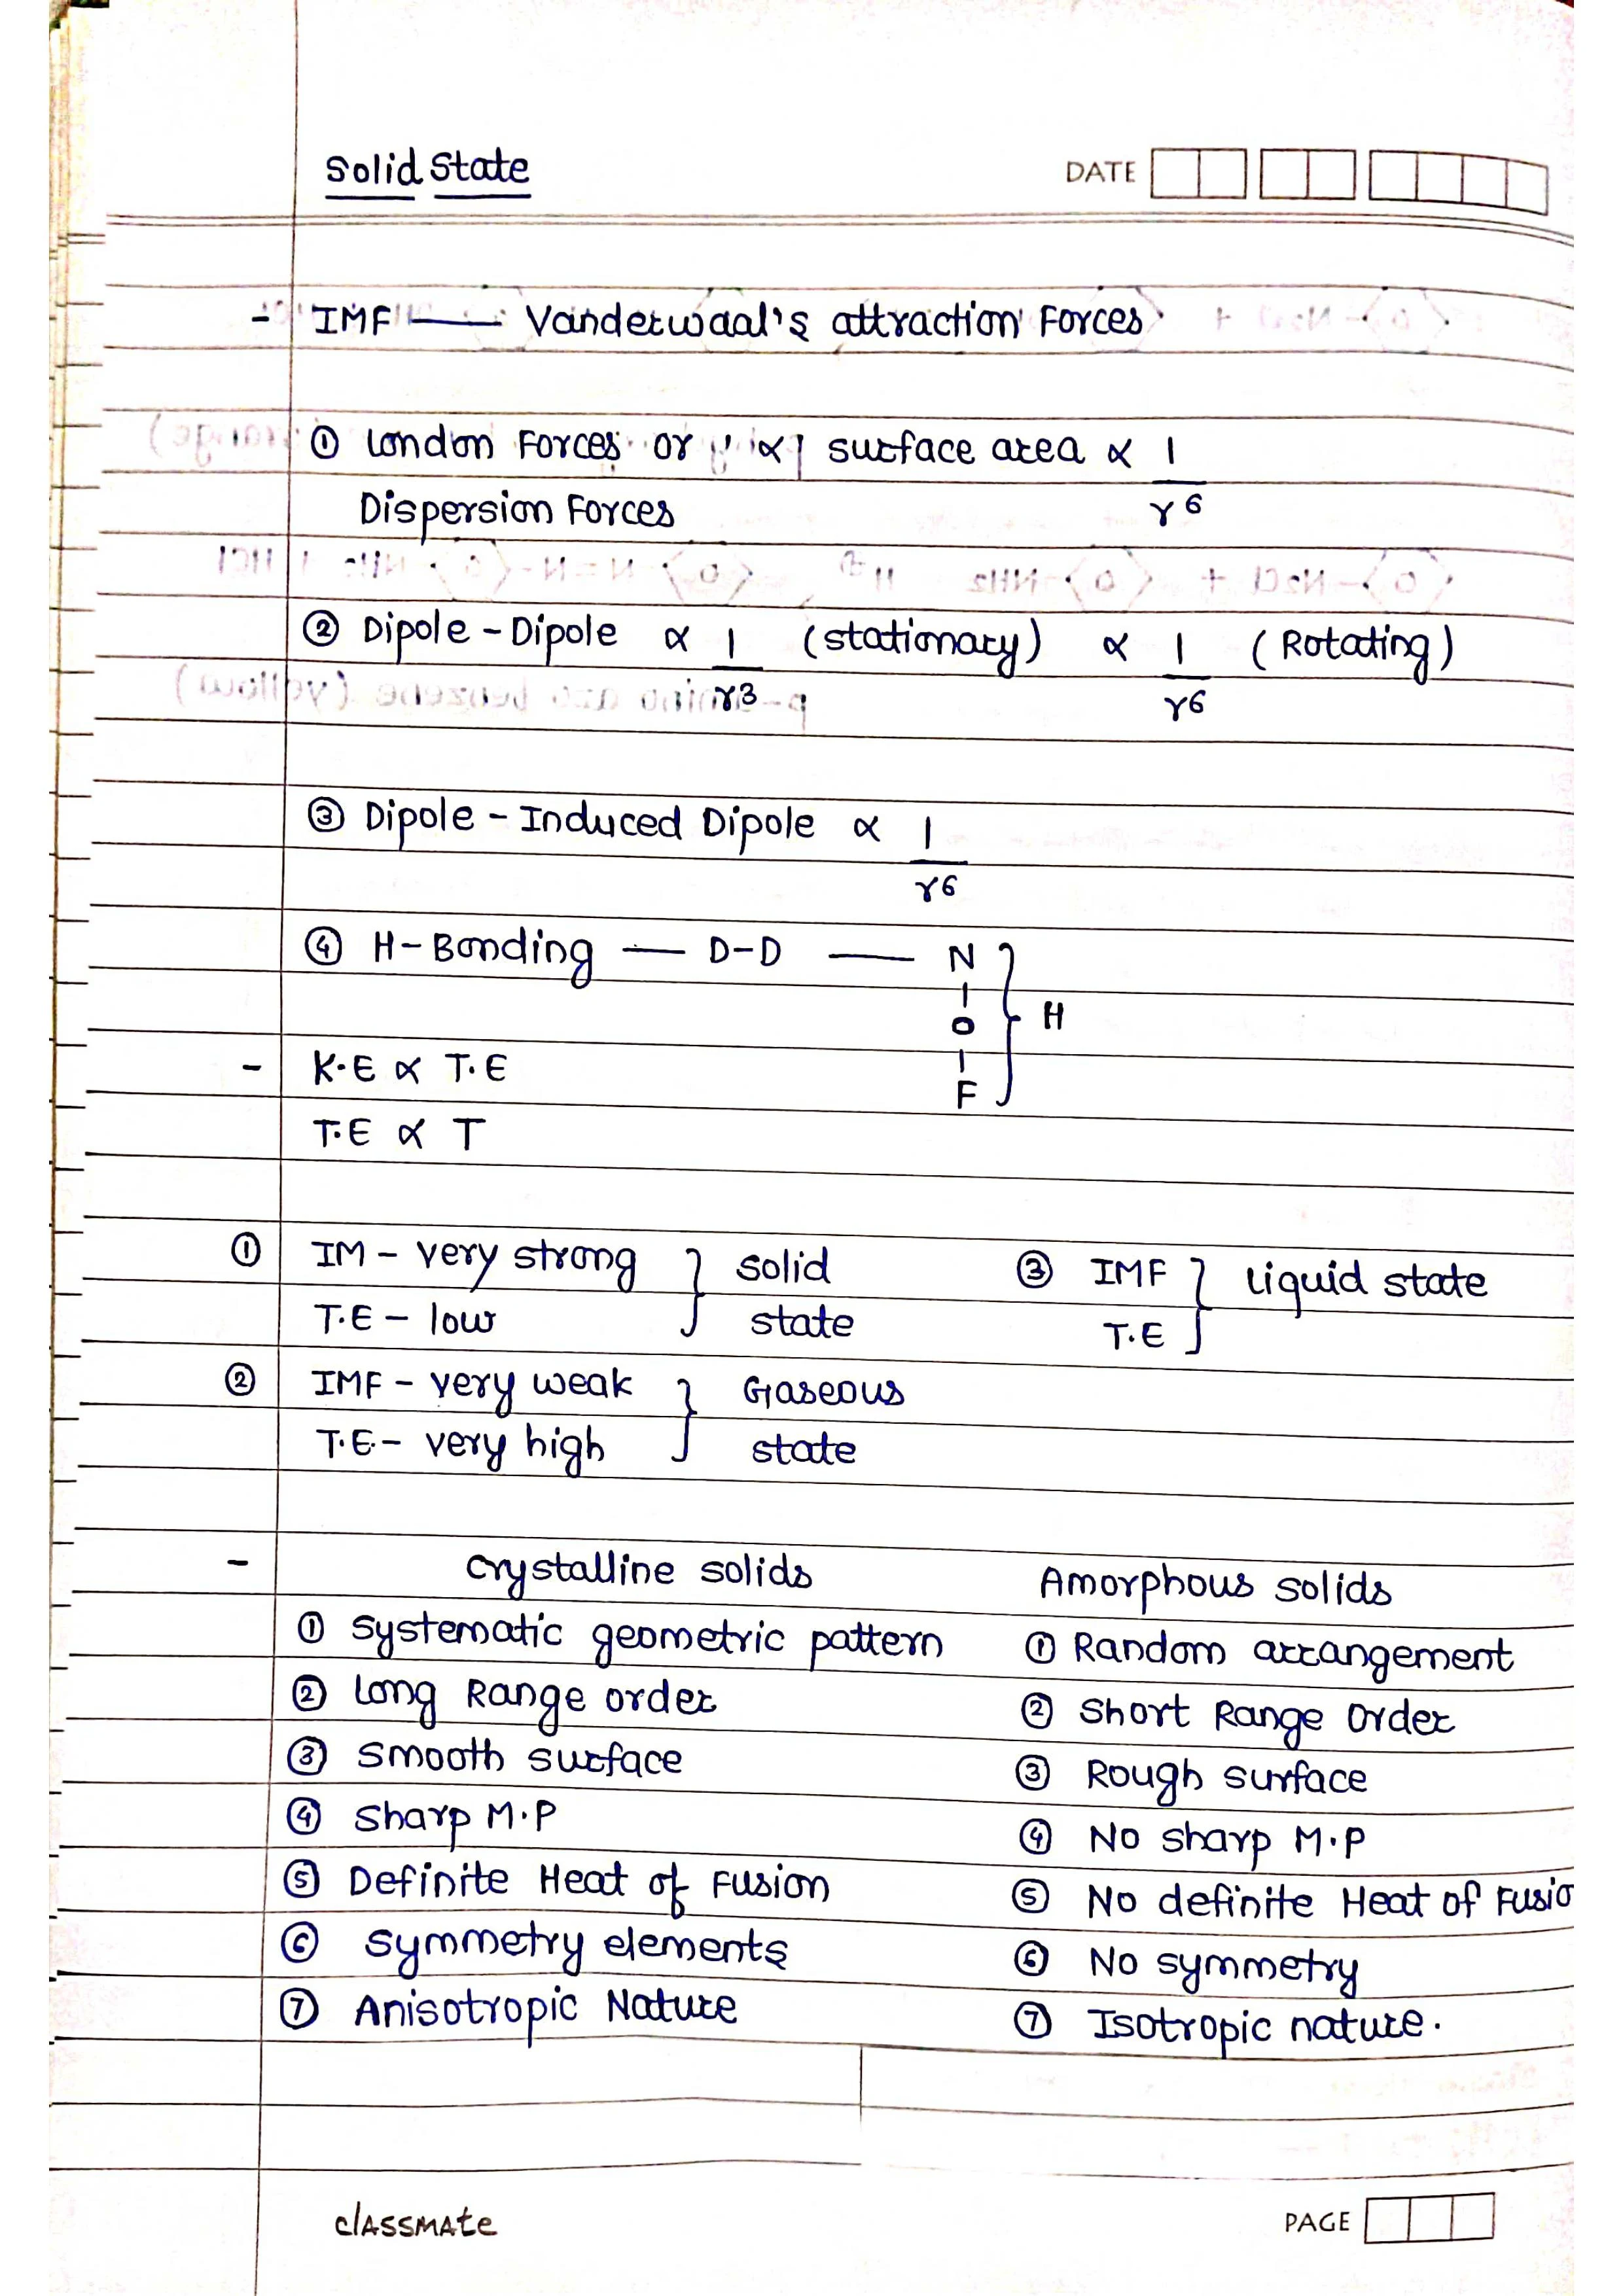 Solid State
DATE
- IMF — Vanderwaal's attraction Forces
① London Forces or ∝ surface area ∝ 1/r⁶
Dispersion Forces
② Dipole - Dipole ∝ 1/r³ (stationary) ∝ 1/r⁶ (Rotating)
③ Dipole - Induced Dipole ∝ 1/r⁶
④ H-Bonding — D-D — N
O } H
- K.E ∝ T.E
F
T.E ∝ T
① IM - very strong } solid ③ IMF } liquid state
T.E - low state T.E
② IMF - very weak } Gaseous
T.E. - very high state
- Crystalline solids Amorphous solids
① Systematic geometric pattern ① Random arrangement
② Long Range order ② Short Range Order
③ Smooth surface ③ Rough surface
④ Sharp M.P ④ No sharp M.P
⑤ Definite Heat of Fusion ⑤ No definite Heat of Fusio
⑥ Symmetry elements ⑥ No symmetry
⑦ Anisotropic Nature ⑦ Isotropic nature.
classmate
PAGE